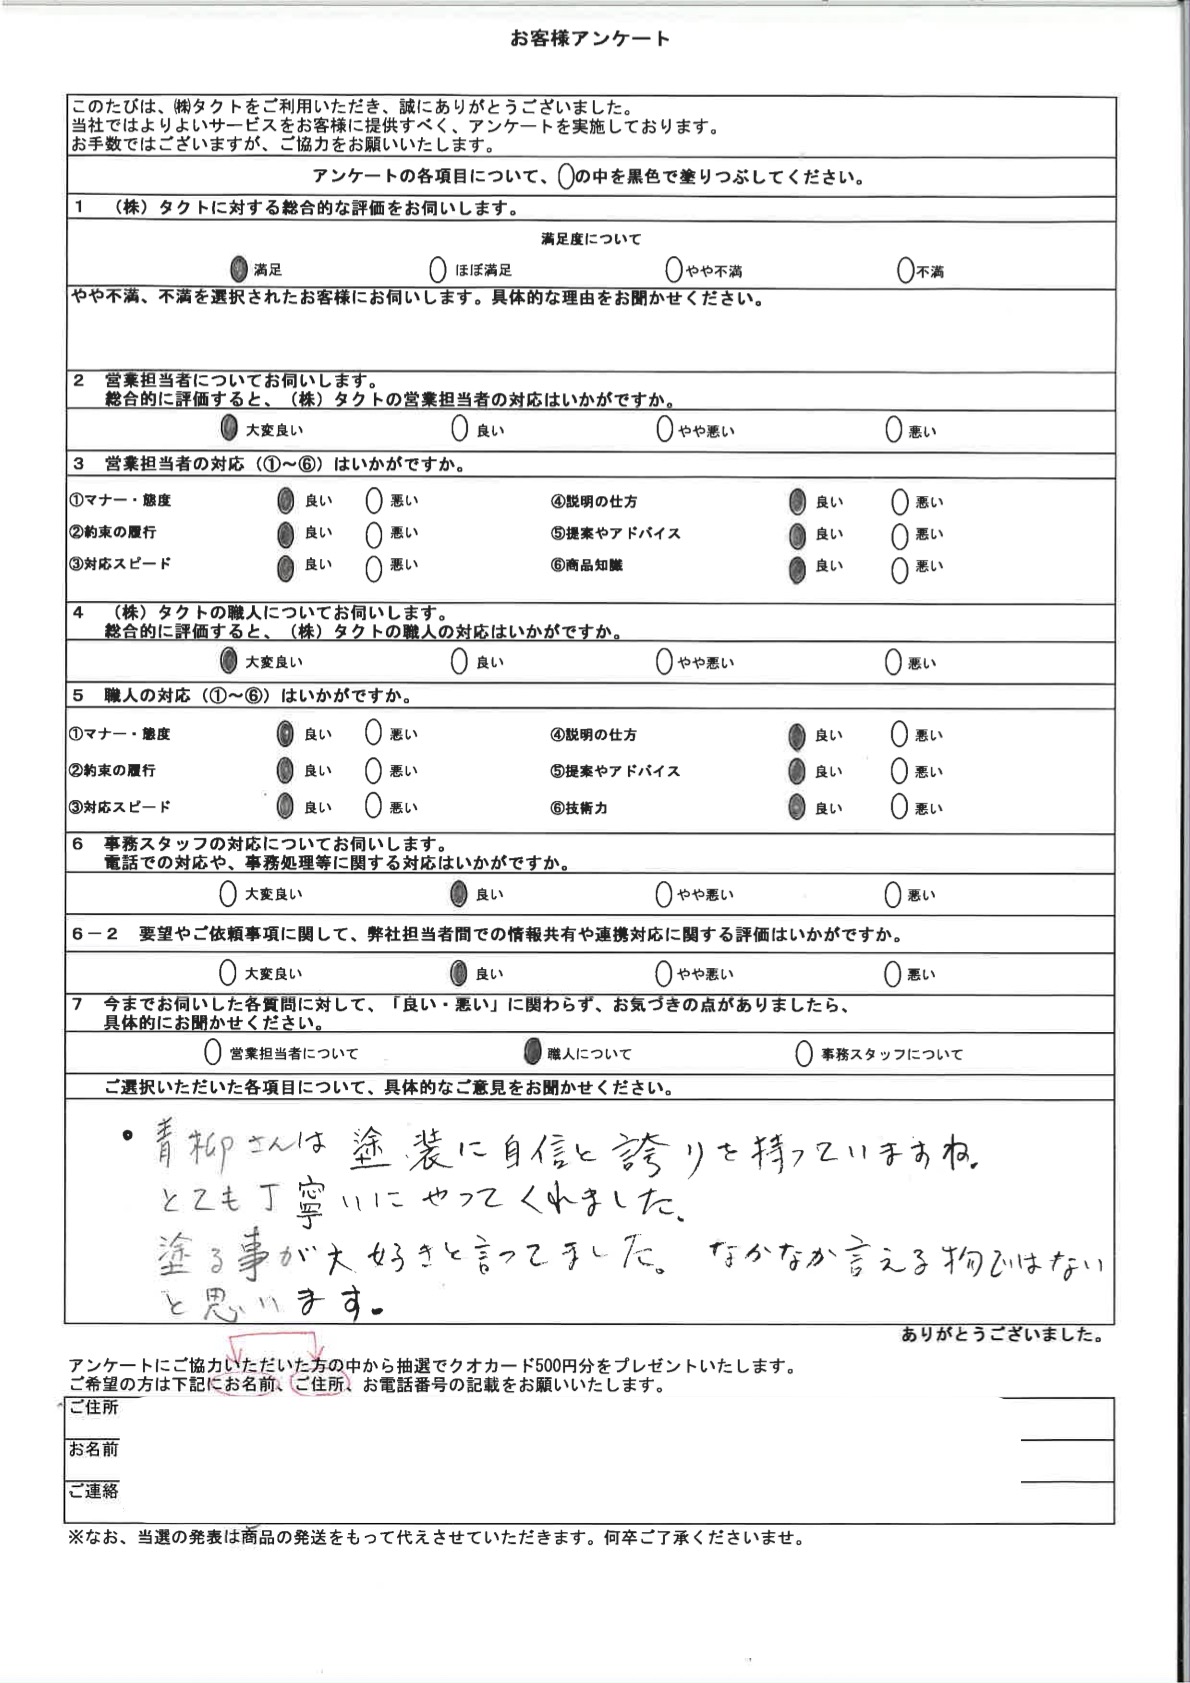 お客様アンケート
このたびは、㈱タクトをご利用いただき、誠にありがとうございました。
当社ではよりよいサービスをお客様に提供すべく、アンケートを実施しております。
お手数ではございますが、ご協力をお願いいたします。
アンケートの各項目について、○の中を黒色で塗りつぶしてください。
1 （株）タクトに対する総合的な評価をお伺いします。
満足度について
満足 ほぼ満足 やや不満 不満
やや不満、不満を選択されたお客様にお伺いします。具体的な理由をお聞かせください。
2 営業担当者についてお伺いします。
総合的に評価すると、（株）タクトの営業担当者の対応はいかがですか。
大変良い 良い やや悪い 悪い
3 営業担当者の対応（①～⑥）はいかがですか。
①マナー・態度 良い 悪い ④説明の仕方 良い 悪い
②約束の履行 良い 悪い ⑤提案やアドバイス 良い 悪い
③対応スピード 良い 悪い ⑥商品知識 良い 悪い
4 （株）タクトの職人についてお伺いします。
総合的に評価すると、（株）タクトの職人の対応はいかがですか。
大変良い 良い やや悪い 悪い
5 職人の対応（①～⑥）はいかがですか。
①マナー・態度 良い 悪い ④説明の仕方 良い 悪い
②約束の履行 良い 悪い ⑤提案やアドバイス 良い 悪い
③対応スピード 良い 悪い ⑥技術力 良い 悪い
6 事務スタッフの対応についてお伺いします。
電話での対応や、事務処理等に関する対応はいかがですか。
大変良い 良い やや悪い 悪い
6－2 要望やご依頼事項に関して、弊社担当者間での情報共有や連携対応に関する評価はいかがですか。
大変良い 良い やや悪い 悪い
7 今までお伺いした各質問に対して、「良い・悪い」に関わらず、お気づきの点がありましたら、
具体的にお聞かせください。
営業担当者について 職人について 事務スタッフについて
ご選択いただいた各項目について、具体的なご意見をお聞かせください。
・青柳さんは塗装に自信と誇りを持っていますね。
とても丁寧いにやってくれました。
塗る事が大好きと言ってました。なかなか言える物ではない
と思います。
ありがとうございました。
アンケートにご協力いただいた方の中から抽選でクオカード500円分をプレゼントいたします。
ご希望の方は下記にお名前、ご住所、お電話番号の記載をお願いいたします。
ご住所
お名前
ご連絡
※なお、当選の発表は商品の発送をもって代えさせていただきます。何卒ご了承くださいませ。